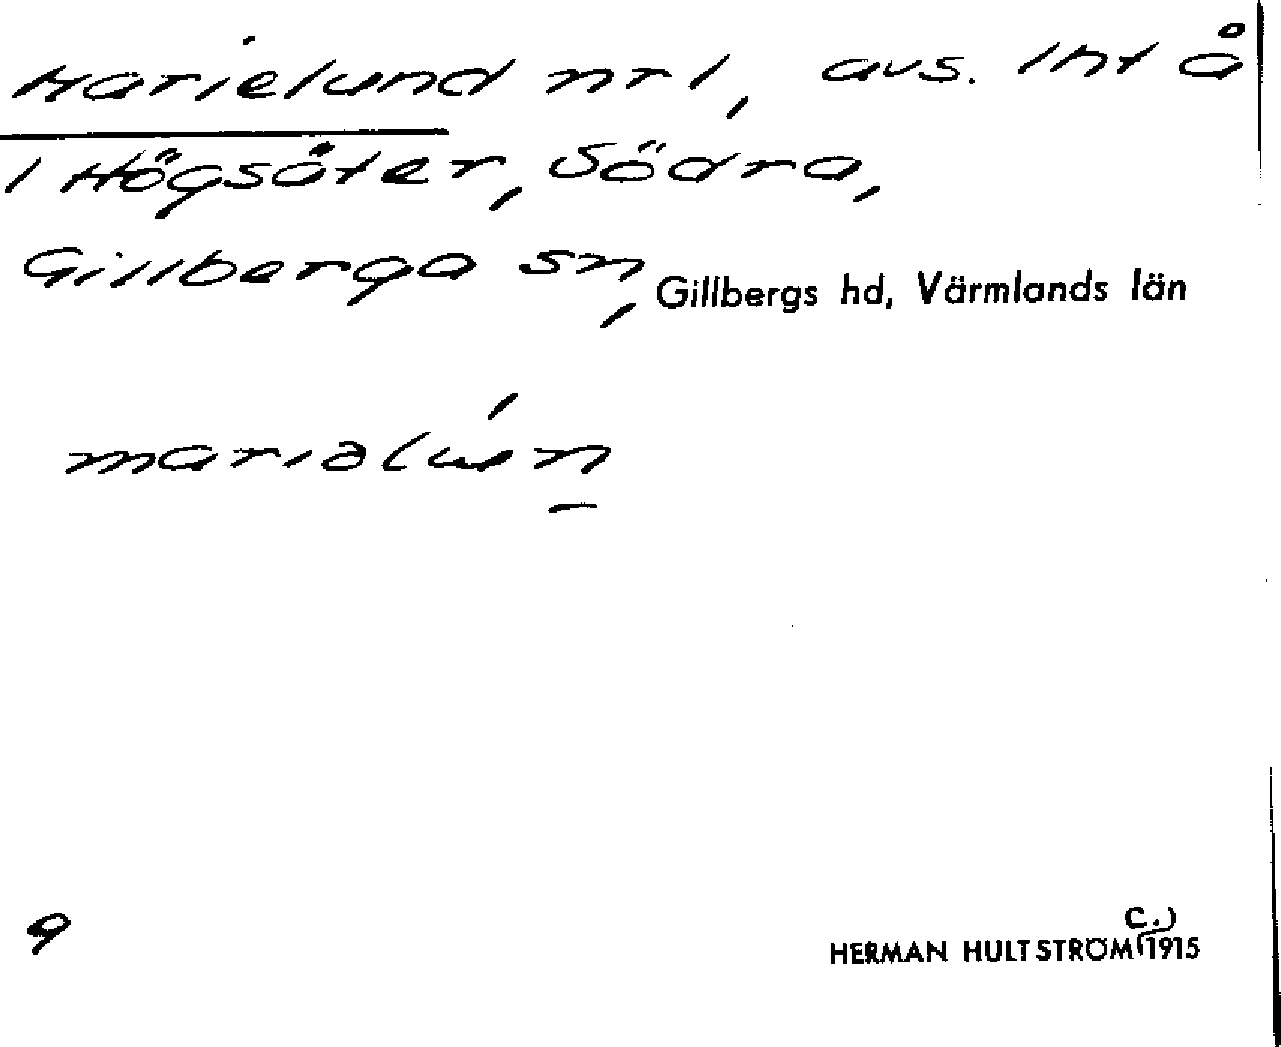 Marielund nr 1, avs. 1ht å
1 Högsäter, Södra,
Gillberga sn, Gillbergs hd, Värmlands län
9
C.)
HERMAN HULTSTRÖM 1915